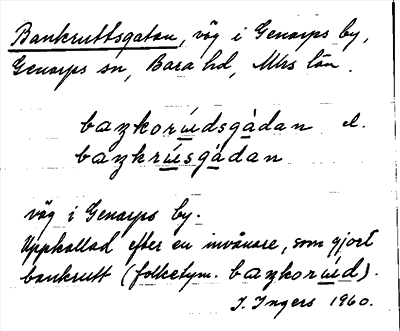 Bankruttsgatan, väg i Genarps by,
Genarps sn, Bara hd, Mhs län.
bazkorúdsgàdan el.
bazkrúsgàdan
väg i Genarps by.
Uppkallad efter en invånare, som gjort
bankrutt (folketym. bazkorúd).
I. Ingers 1960.